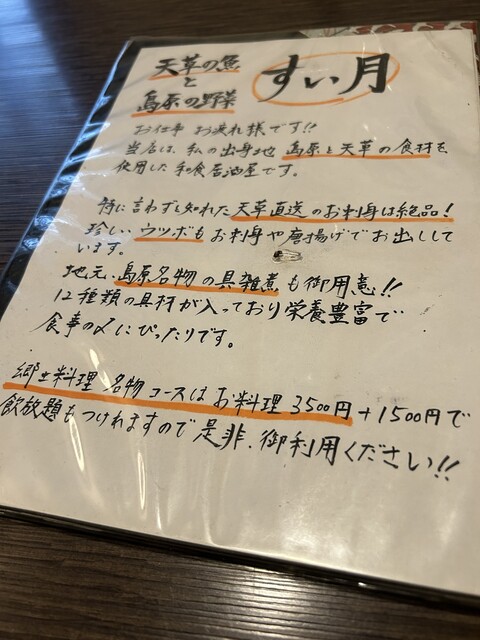 天草の魚
と
島原の野菜
すい月
お仕事 お疲れ様です!!
当店は、私の出身地 島原と天草の食材を
使用した和食居酒屋です。
特に言わずと知れた天草直送のお刺身は絶品!
珍しいウツボもお刺身や唐揚げでお出しして
います。
地元、島原名物の具雑煮も御用意!!
12種類の具材が入っており栄養豊富で
食事の〆にぴったりです。
郷土料理 名物コースはお料理3500円+1500円で
飲放題もつけれますので是非、御利用ください!!